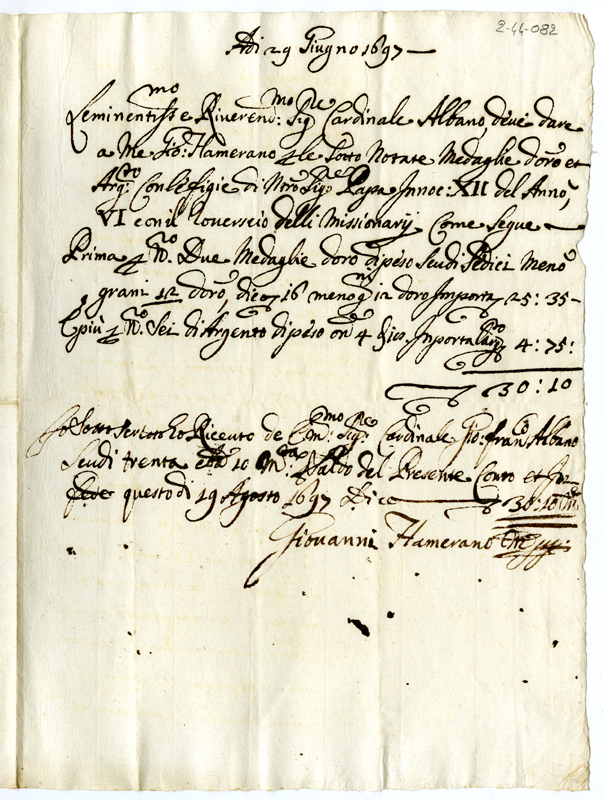 2-44-082
Adi 29 Giugno 1697
L'eminentiss.mo e Riverend.mo Sig.re Cardinale Albano, deve dare
a Me Gio: Hamerano p le sotto Notate Medaglie d'oro et
Arg.to Con l'efigie di N'tro Sig.re Papa Innoc: XII del Anno,
VI e con il Roverscio delli Missionarij Come Segue
Prima p N.ro Due Medaglie d'oro di peso Scudi Sedici Meno
grani 12 d'oro, dico 16 meno g.ni 12 d'oro Importa 25:35-
E più p N.ro Sei di Argento di peso on 4 Inporta 4:75:
30:10
Io Sotto Scritto ho Riceuto de Em.mo Sig.re Cardinale Gio: fran.co Albano
Scudi trenta 10 M.ta Saldo del Presente Conto et In
fede questo di 19 Agosto 1697 Dico 30:10
Giovanni Hamerano